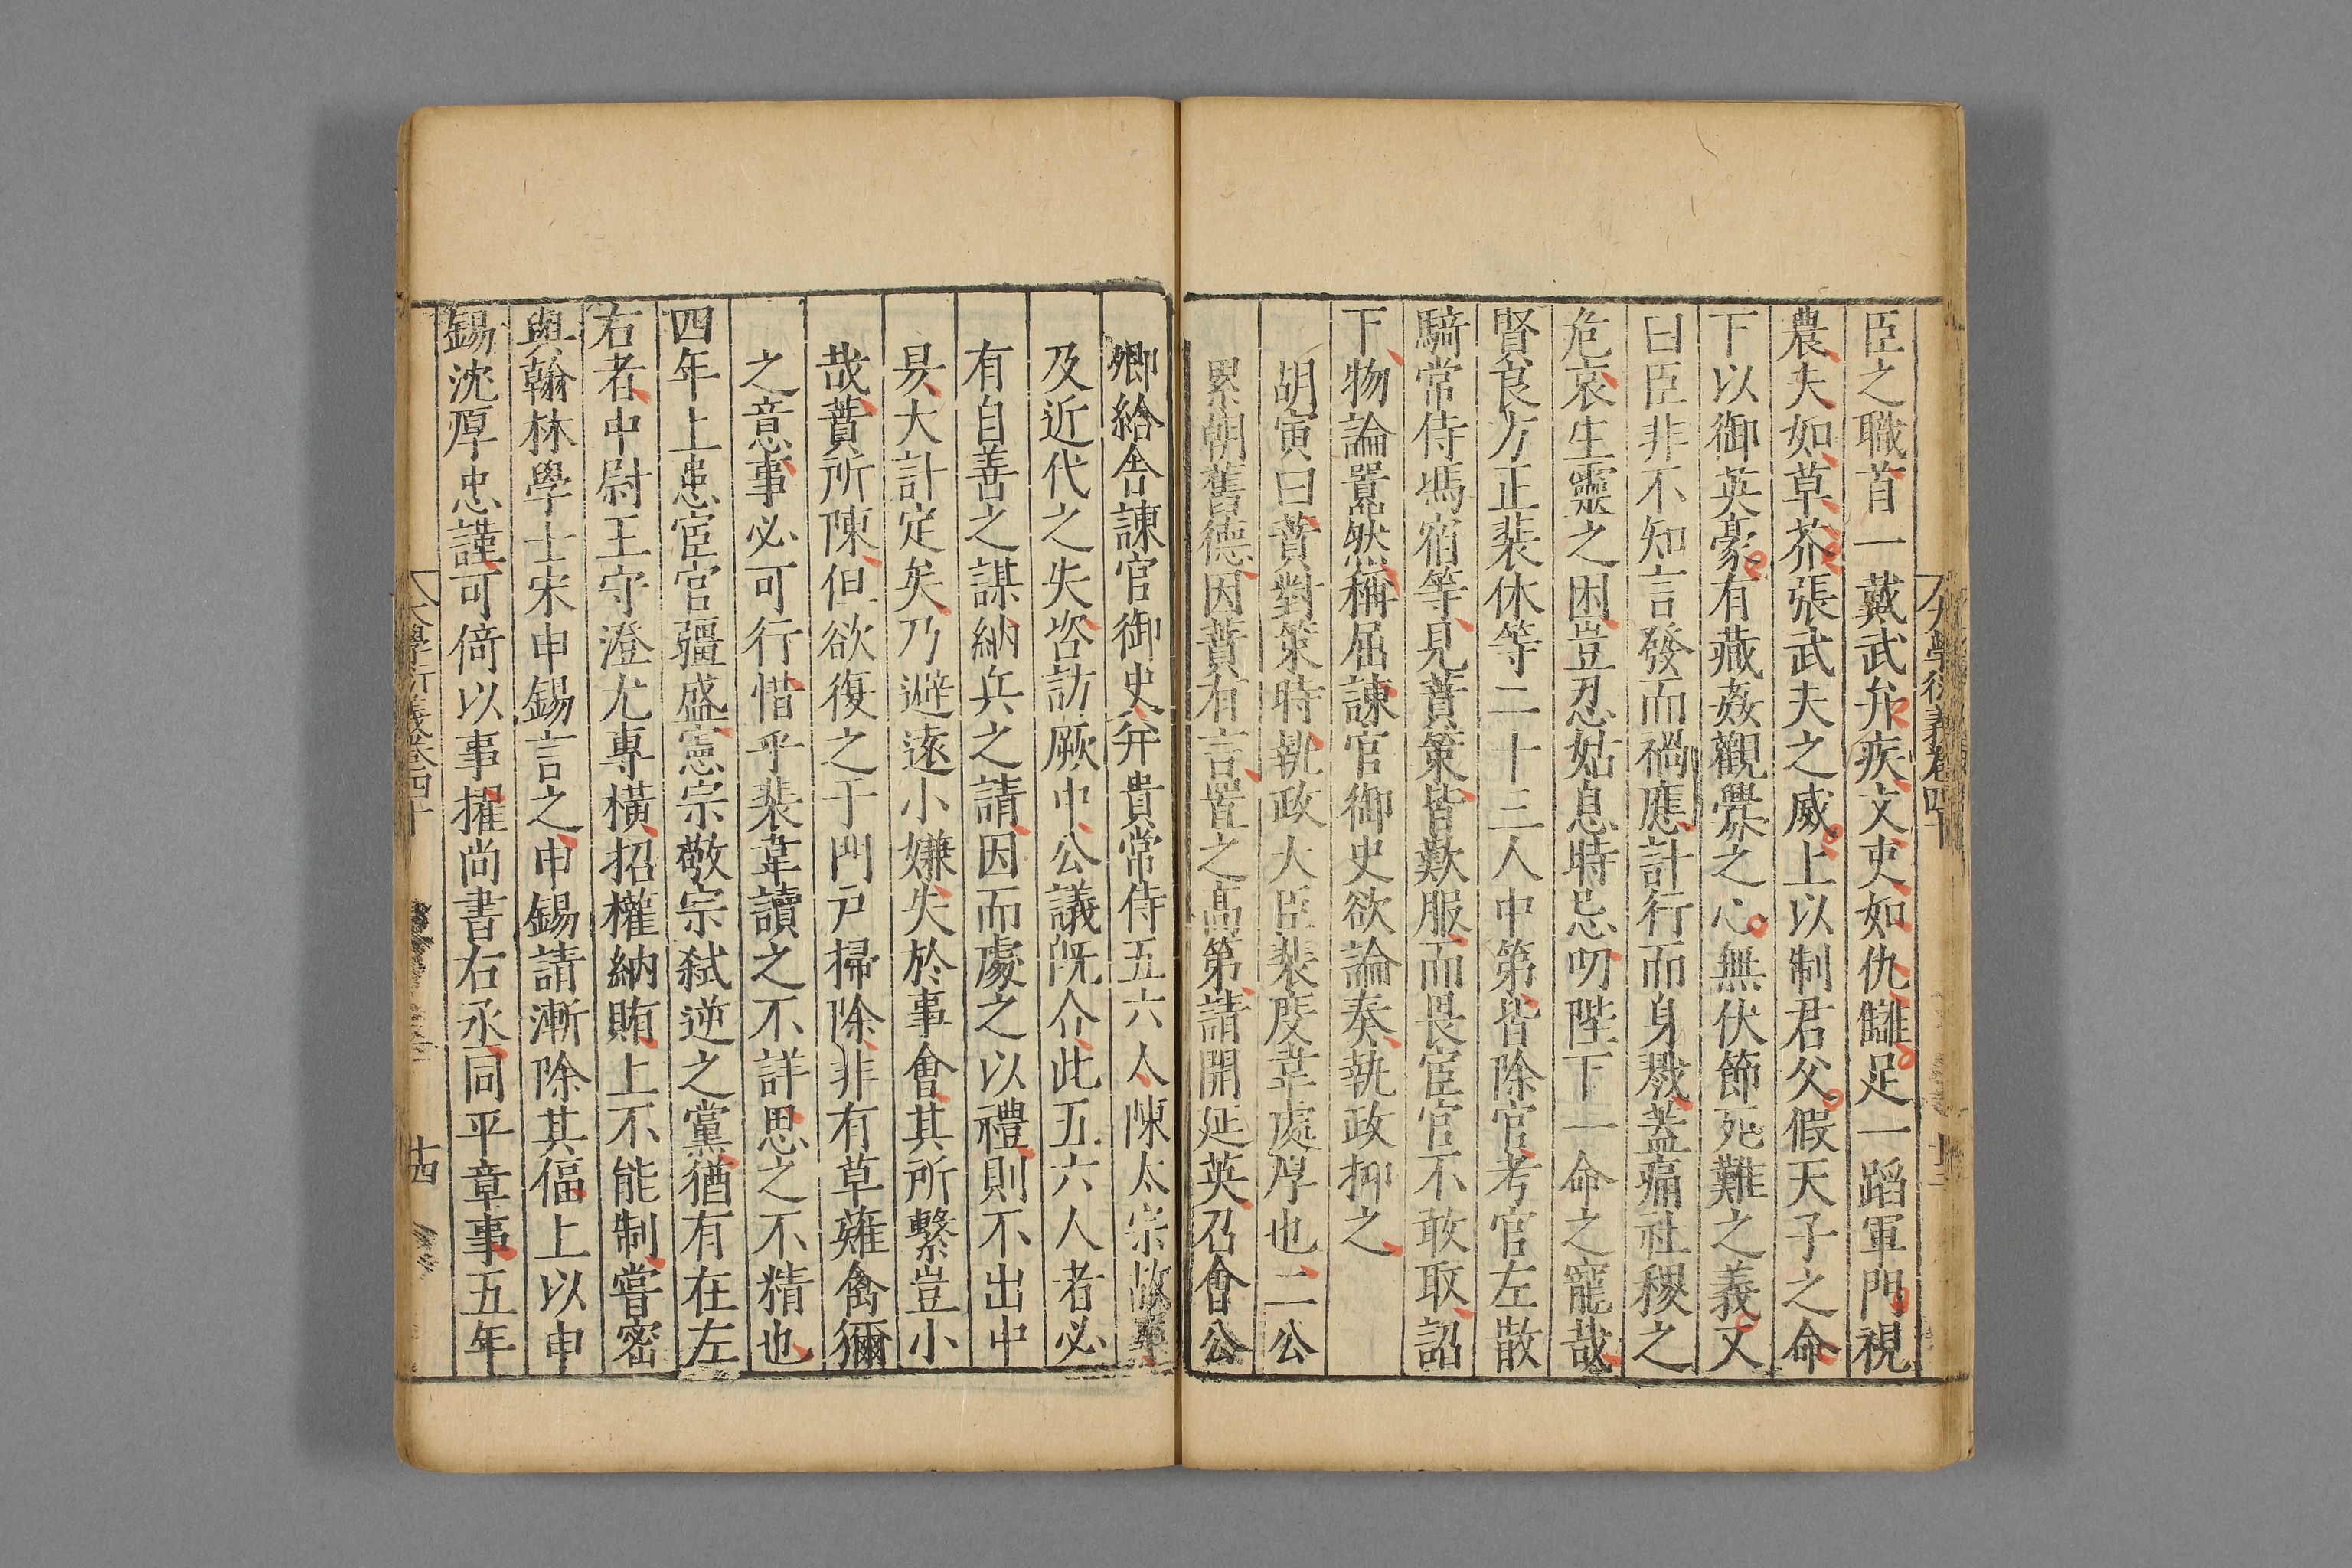 臣之職首一戴武弁疾文吏如仇讎足一蹈軍門視
農夫如草芥張武夫之威上以制君父假天子之命
下以御英豪有藏姦觀釁之心無伏節死難之義又
曰臣非不知言發而禍應計行而身戮蓋痛社稷之
危哀生靈之困豈忍姑息時忌叨陛下一命之寵哉
賢良方正裴休等二十三人中第皆除官考官左散
騎常侍馮宿等見蕡策皆歎服而畏宦官不敢取詔
下物論囂然稱屈諫官御史欲論奏執政抑之
胡寅曰蕡對策時執政大臣裴度韋處厚也二公
累朝舊德因蕡有言置之高第請開延英召會公
卿給舍諫官御史并貴常侍五六人陳太宗故事
及近代之失咨訪厥中公議既介此五六人者必
有自善之謀納兵之請因而處之以禮則不出中
昜大計定矣乃避遠小嫌失於事會其所繫豈小
哉蕡所陳但欲復之于門戸掃除非有草薙禽獮
之意事必可行惜乎裴韋讀之不詳思之不精也
四年上患宦官彊盛憲宗敬宗弑逆之黨猶有在左
右者中尉王守澄尤專橫招權納賄上不能制嘗密
與翰林學士宋申錫言之申錫請漸除其偪上以申
錫沈厚忠謹可倚以事擢尚書右丞同平章事五年
大學衍義卷四十
廿四